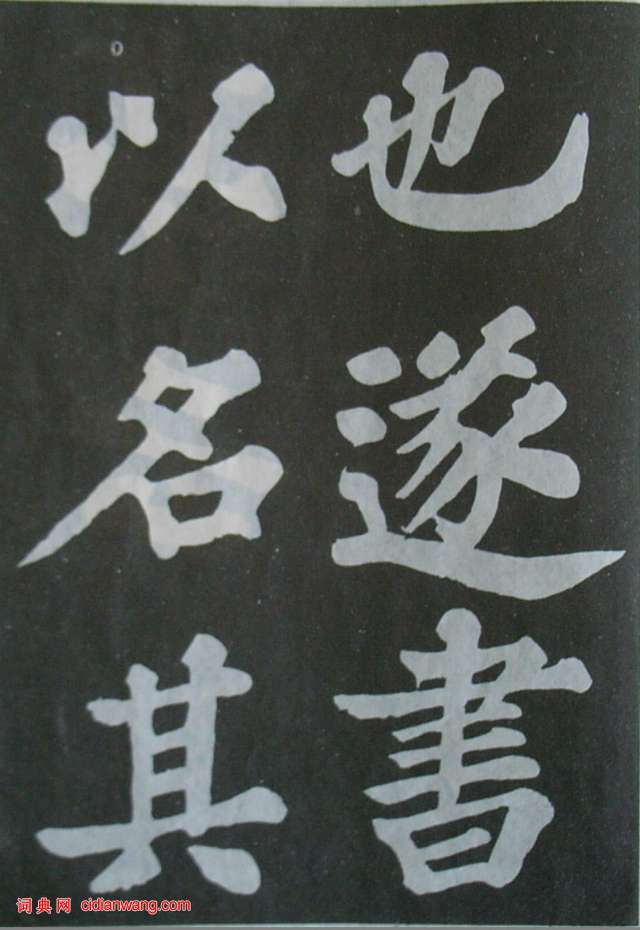 也遂書
以名其
词典网 cidianwang.com